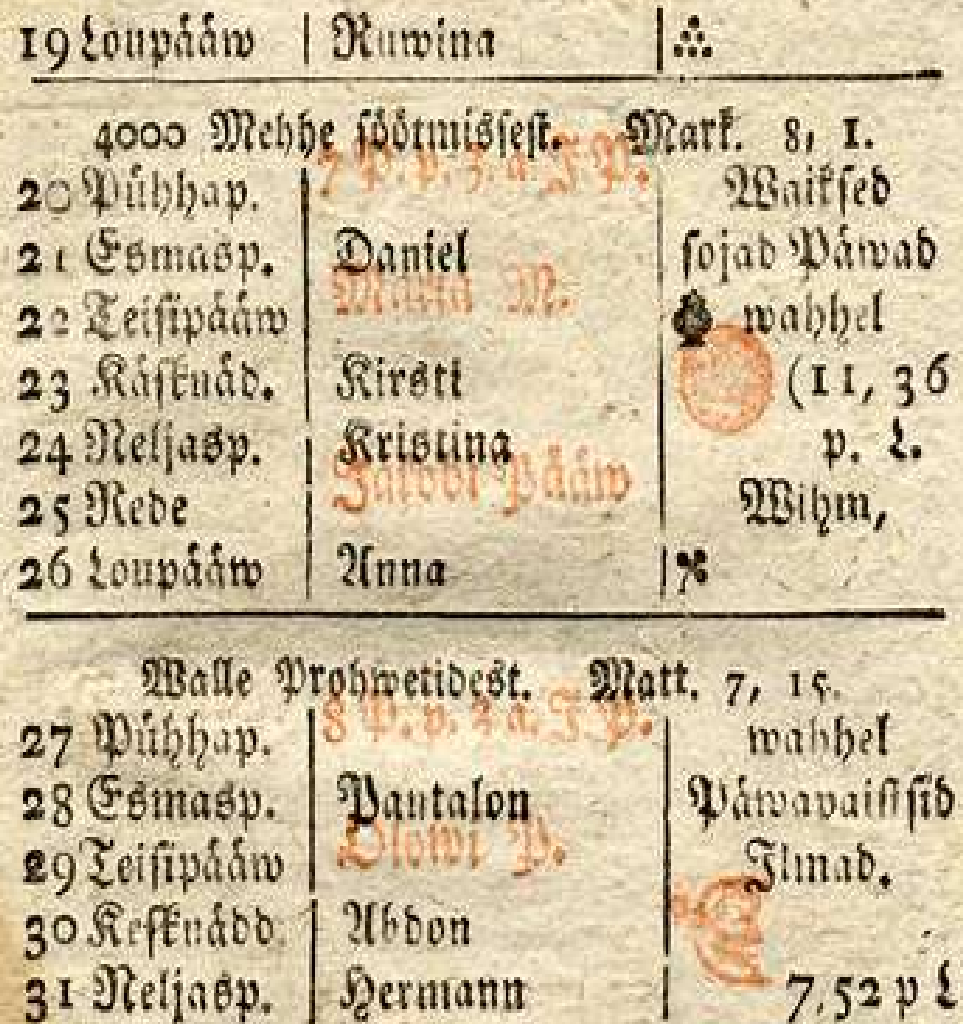 19 Loupääw | Ruwina
4000 Mehhe söötmissest. Mark. 8, 1.
20 Pühhap. 7 P. p. 3. a. J P. Waiksed
21 Esmasp. Daniel sojad Päwad
22 Teisipääw Maria M. wahhel
23 Käsknäd. Kirsti (11, 36
24 Neljasp. Kristina p. L.
25 Rede Jakobi Pääw Wihm,
26 Loupääw Anna
Walle Prohwetidest. Matt. 7, 15.
27 Pühhap. 8 P. p. 3 a. J P. wahhel
28 Esmasp. Pantalon Päwapaistsid
29 Teisipääw Olowi P. Ilmad.
30 Kesknädd. Abdon
31 Neljasp. Hermann 7,52 p L